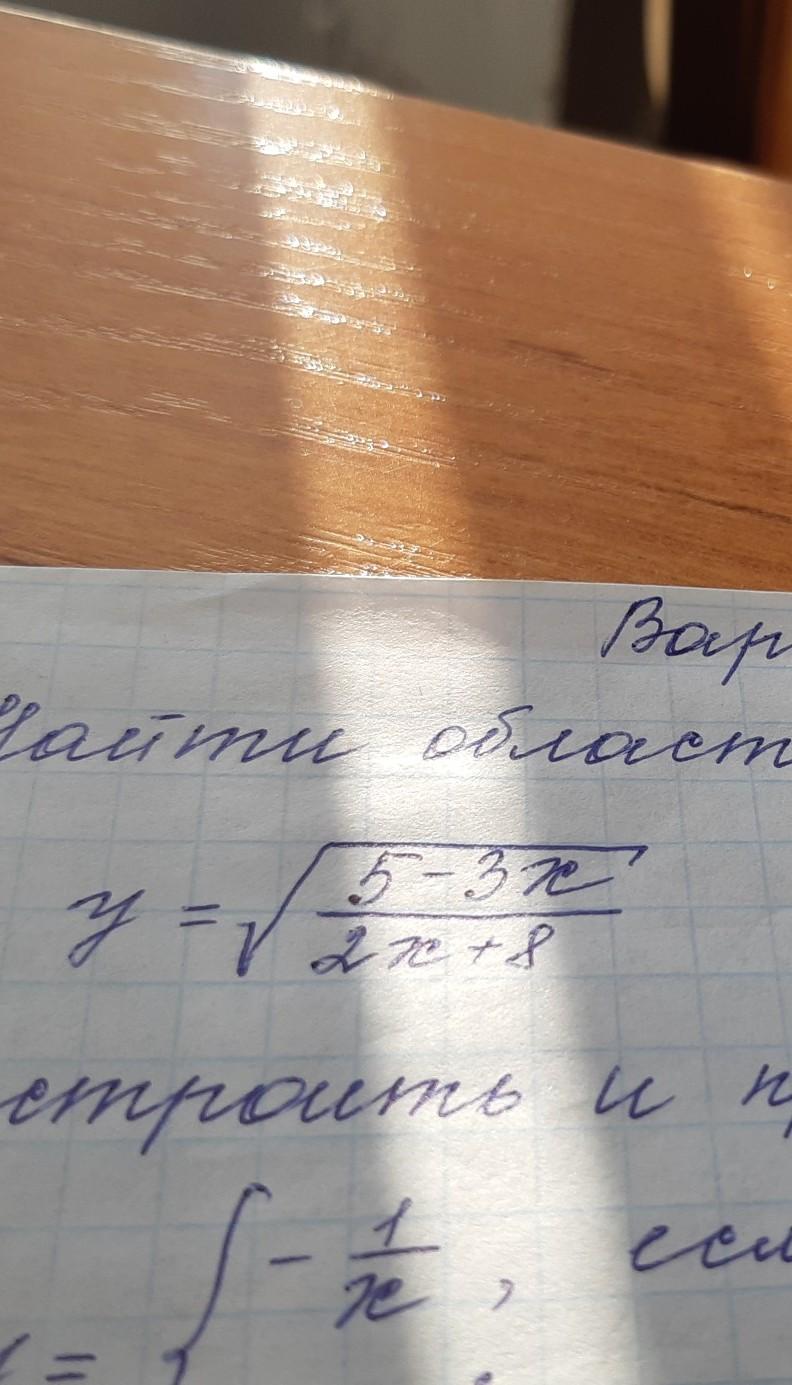 Вар
Найти област
y = √((5-3x)/(2x+8))
строить и п
{ -1/x, есл
=